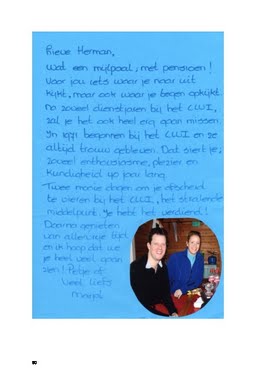 Lieve Herman,
Wat een mijlpaal, met pensioen!
Voor jou iets waar je naar uit
kijkt, maar ook waar je tegen opkijkt.
Na zoveel dienstjaren bij het CWI,
zal je het ook heel erg gaan missen.
In 1971 begonnen bij het CWI en ze
altijd trouw gebleven. Dat siert je,
zoveel enthousiasme, plezier en
kundigheid 40 jaar lang.
Twee mooie dagen om je afscheid
te vieren bij het CWI, het stralende
middelpunt. Je hebt het verdiend!
Daarna genieten
van alle vrije tijd
en ik hoop dat we
je heel veel gaan
zien! Petje af
Veel liefs